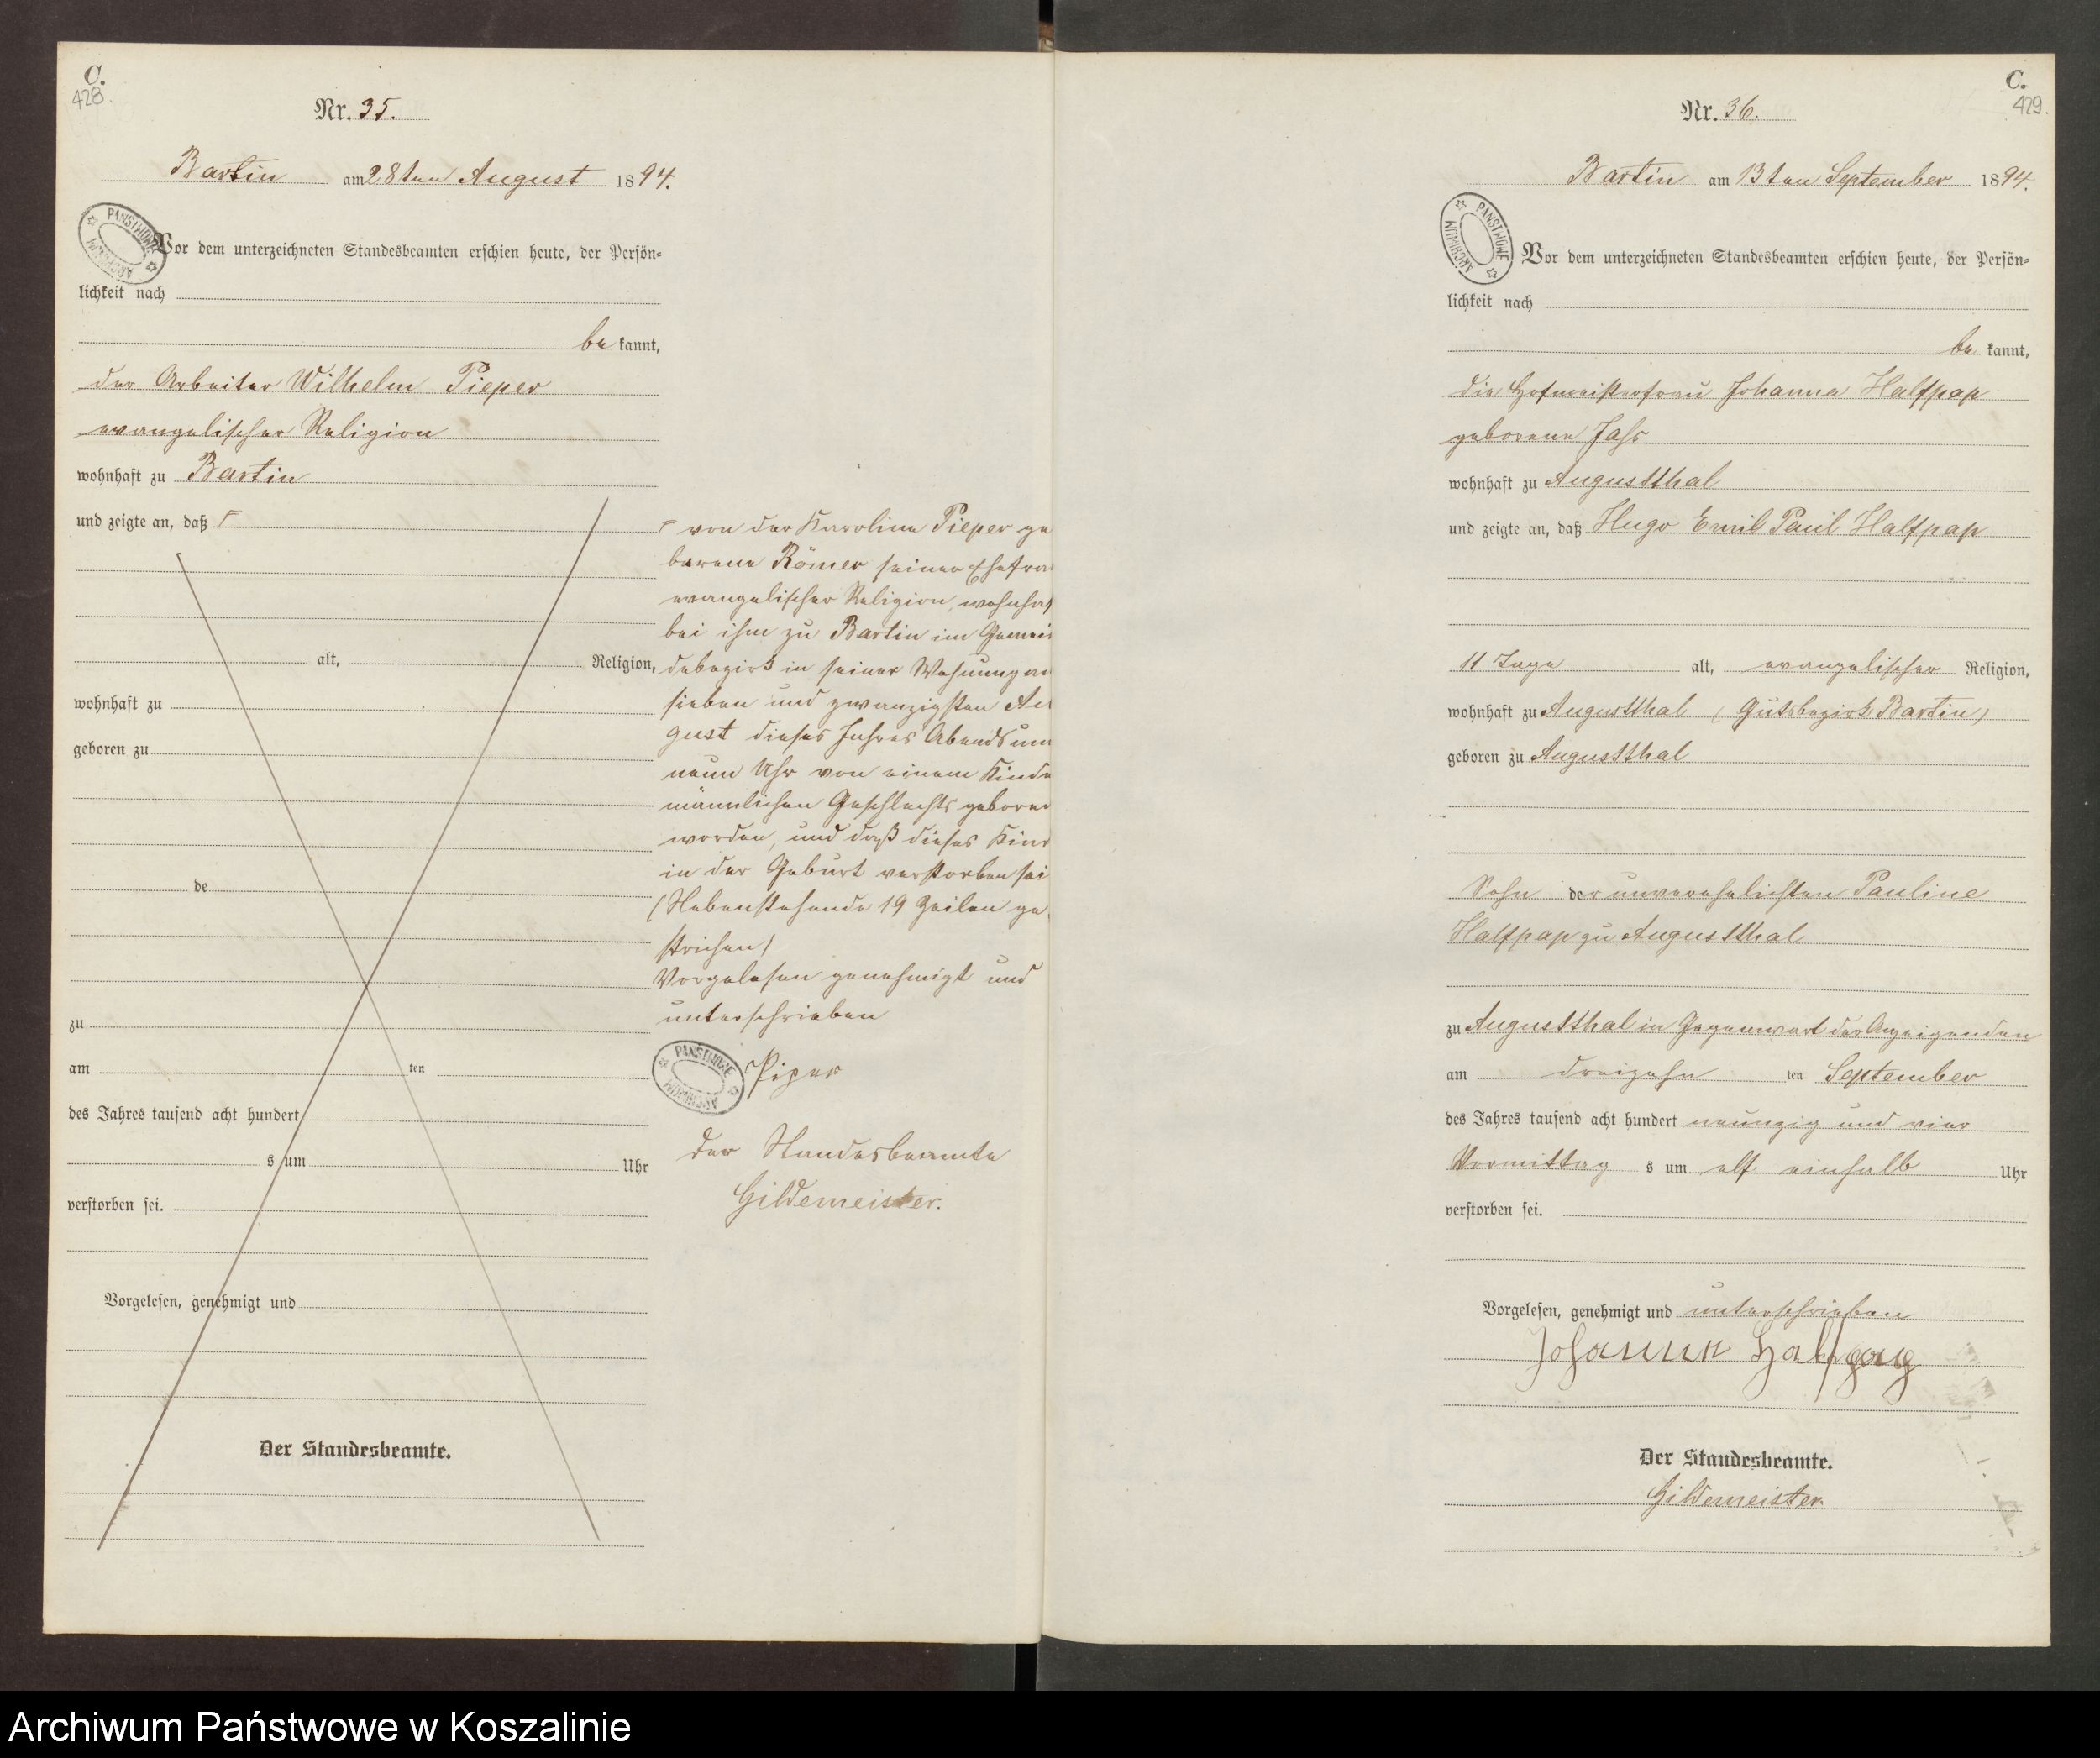 C.
428
Nr. 35.
Bartin am 28ten August 1894.
Vor dem unterzeichneten Standesbeamten erschien heute, der Persön-
lichkeit nach
be kannt,
der Arbeiter Wilhelm Pieper
evangelischer Religion
wohnhaft zu Bartin
und zeigte an, daß
alt, Religion,
wohnhaft zu
geboren zu
de
zu
am ten
des Jahres tausend acht hundert
s um Uhr
verstorben sei.
Vorgelesen, genehmigt und
Der Standesbeamte.
von der Karoline Pieper ge
borene Römer seiner Ehefra
evangelischer Religion, wohnhaf
bei ihm zu Bartin im Gemein
debezirk in seiner Wohnung am
sieben und zwanzigsten Au
gust dieses Jahres Abends um
neun Uhr von einem Kinde
männlichen Geschlechts geboren
worden, und daß dieses Kind
in der Geburt verstorben sei
(Nebenstehende 19 Zeilen ge
strichen)
Vorgelesen genehmigt und
unterschrieben
PAŃSTWOWE ARCHIWUM
Piper
Der Standesbeamte
Gildemeister.
C.
429.
Nr. 36.
Bartin am 13ten September 1894.
PAŃSTWOWE ARCHIWUM
Vor dem unterzeichneten Standesbeamten erschien heute, der Persön-
lichkeit nach
be kannt,
die Hofmeisterfrau Johanna Halfpap
geborene Jahr
wohnhaft zu Augustthal
und zeigte an, daß Hugo Emil Paul Halfpap
11 Tage alt, evangelischer Religion,
wohnhaft zu Augustthal (Gutsbezirk Bartin)
geboren zu Augustthal
Sohn der unverehelichten Pauline
Halfpap zu Augustthal
zu Augustthal in Gegenwart der Anzeigenden
am dreizehn ten September
des Jahres tausend acht hundert neunzig und vier
Vormittag s um elf einhalb Uhr
verstorben sei.
Vorgelesen, genehmigt und unterschrieben
Johanna Halfpap
Der Standesbeamte.
Gildemeister.
Archiwum Państwowe w Koszalinie